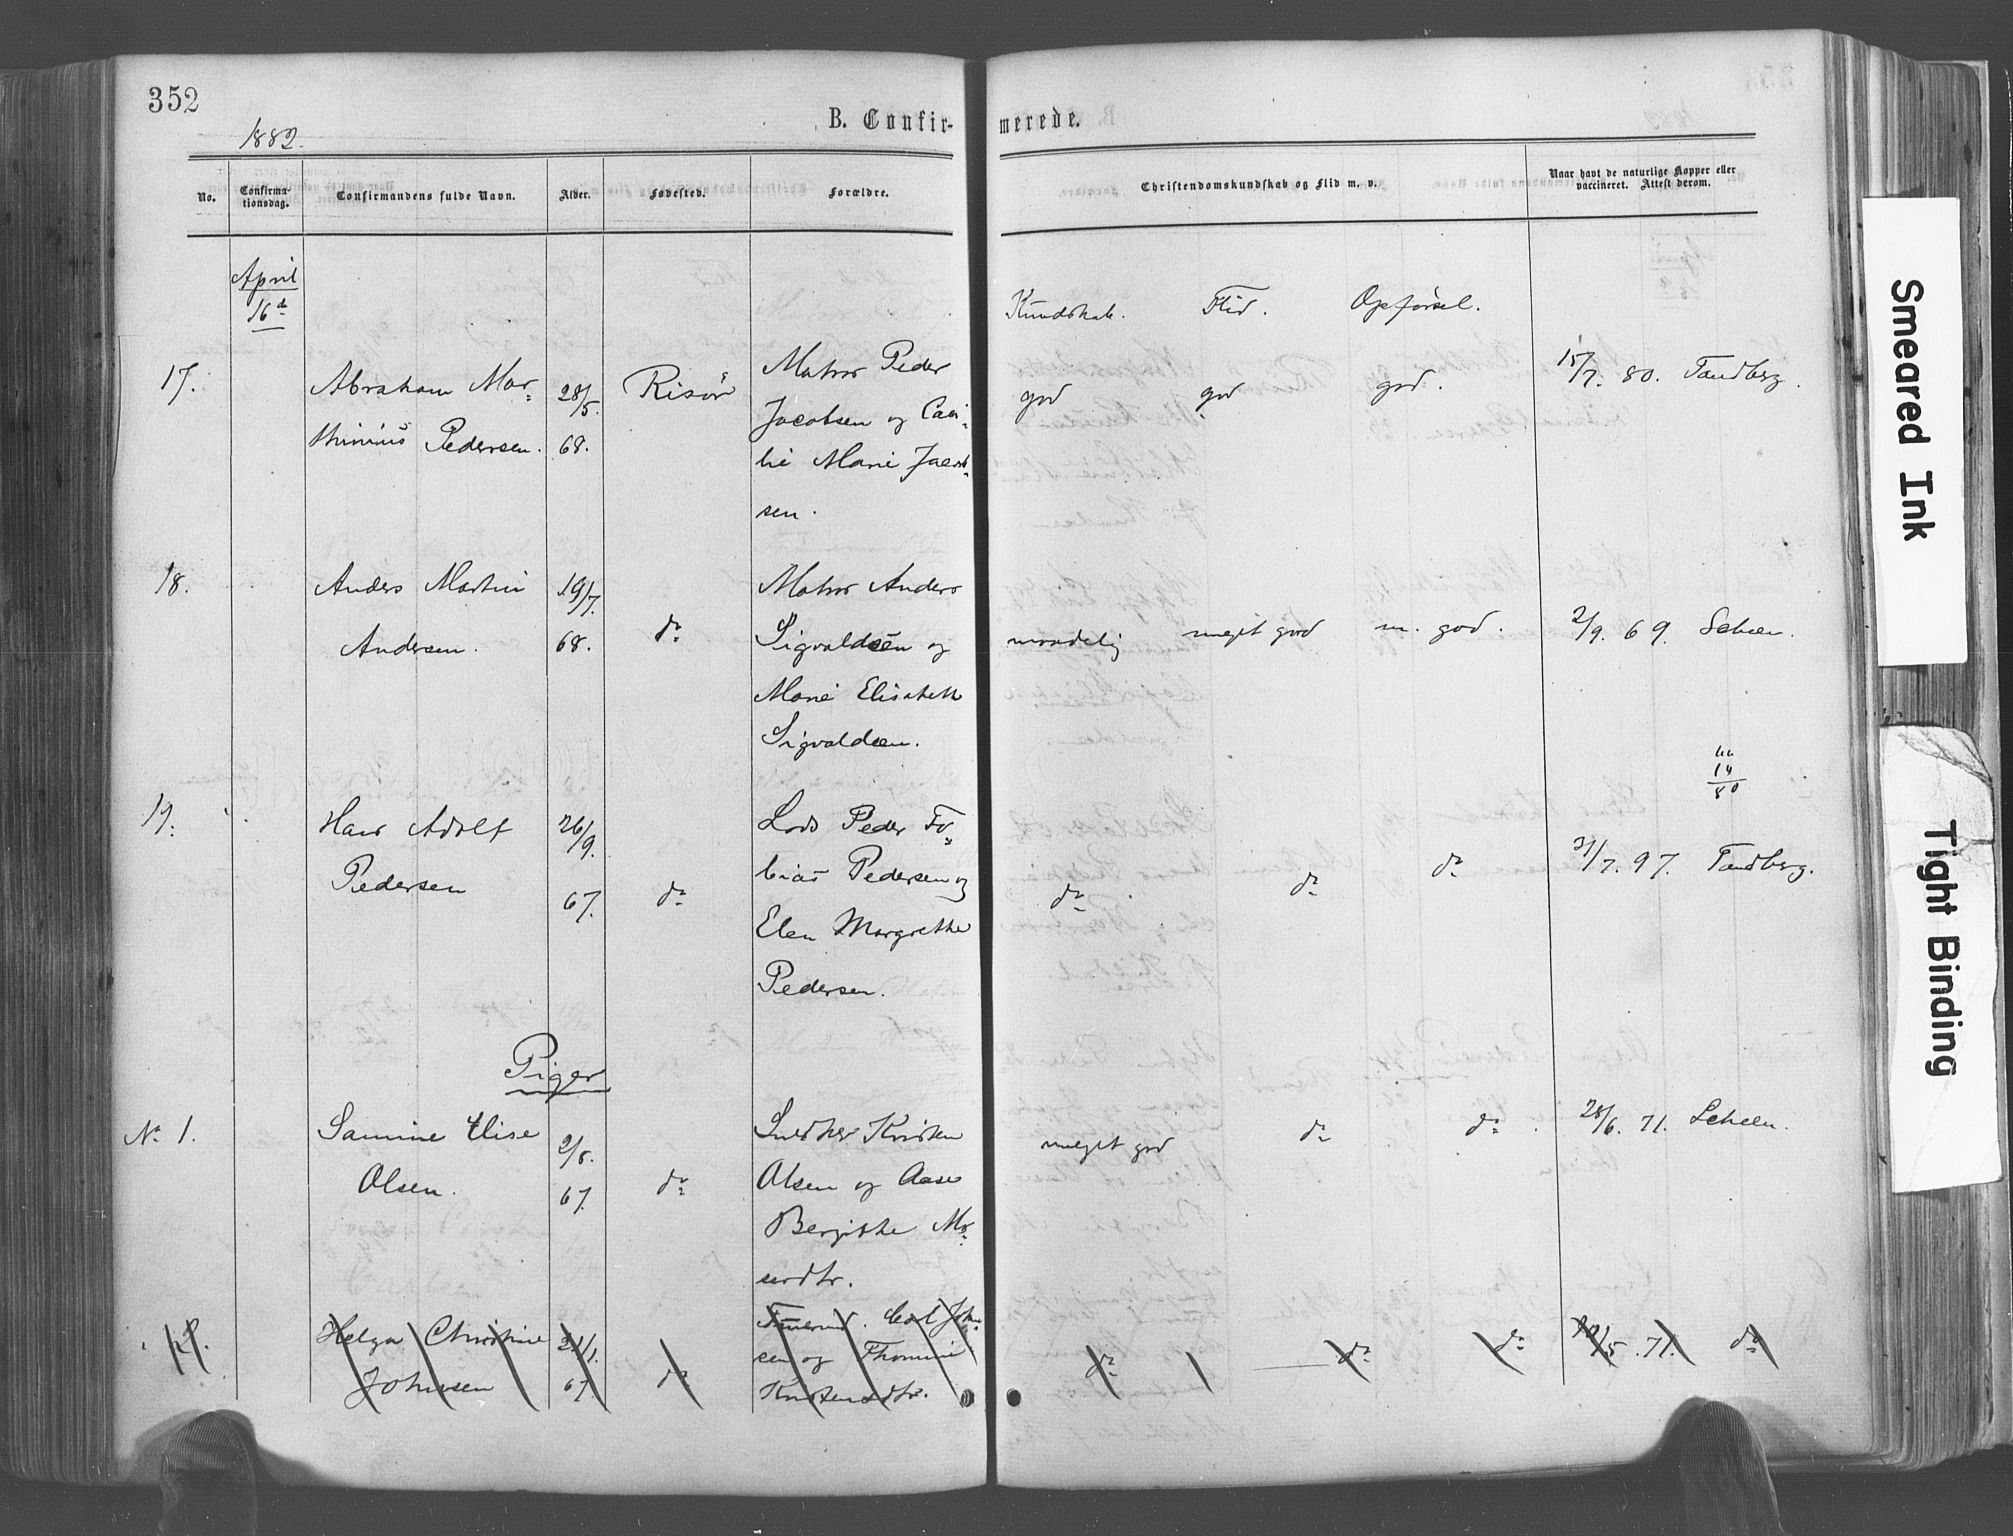 352
1882.
B. Confir-
merede.
No.
Confirma-
tionsdag.
Confirmandens fulde Navn.
Alder.
Fødested.
Forældre.
Christendomskundskab og Flid m. v.
Naar havt de naturlige Kopper eller
vaccineret. Attest derom.
April
16de
Kundskab.
Flid.
Opførsel.
17.
Abraham Mar-
thinius Pedersen.
28/5.
68.
Risør
Matros Peder
Jacobsen og
Marie Jacob-
sen.
god
god
god.
15/7. 80. Tandberg.
18.
Anders Martin
Andersen.
19/7.
68.
do
Matros Anders
Sigvaldsen og
Marie Elisabeth
Sigvaldsen.
maadelig
meget god
m. god.
2/9. 69. Scheen.
14
80
19.
Hans Adolf
Pedersen
26/9.
67.
do
Lods Peder To-
bias Pedersen og
Elen Margrethe
Pedersen.
do
do
do
31/7. 97. Tandberg.
Piger
No 1.
Samine Elise
Olsen.
2/8.
67.
do
Kristen
Olsen og Aase
Bergithe
meget god
do
do
28/6. 71. Scheen.
Helga Christine
Johnsen
21/1.
67.
do
Carl John-
sen og Thomine
Kristensdtr.
do
do
do
71. do
Smeared Ink
Tight Binding